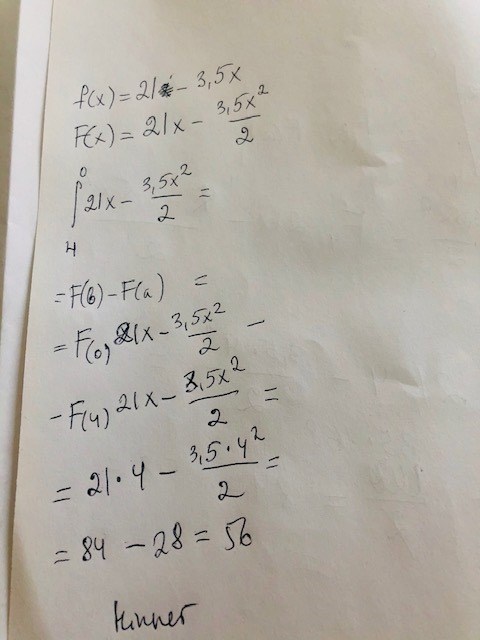 f(x) = 21 - 3,5x
F(x) = 21x - 3,5x²/2
∫₄⁰ 21x - 3,5x²/2 =
= F(b) - F(a) =
= F(0) 21x - 3,5x²/2 -
- F(4) 21x - 3,5x²/2 =
= 21·4 - 3,5·4²/2 =
= 84 - 28 = 56